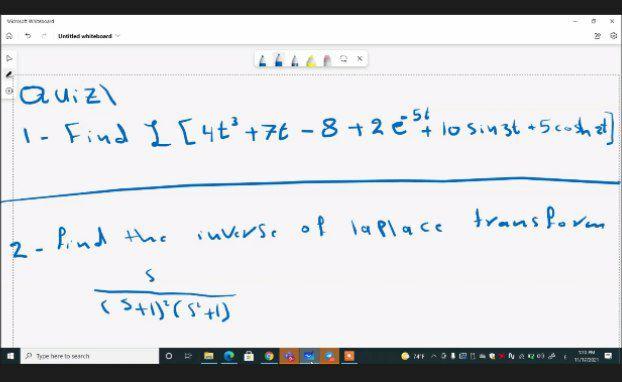 Microsoft Whiteboard
Untitled whiteboard
Quiz\
1 - Find ℒ [4t³ + 7t - 8 + 2 e^-5t + 10 sin 3t + 5 cosh 2t]
2 - find the inverse of laplace transform
s
(s+1)² (s²+1)
Type here to search
74°F
1:13 PM
11/17/2021